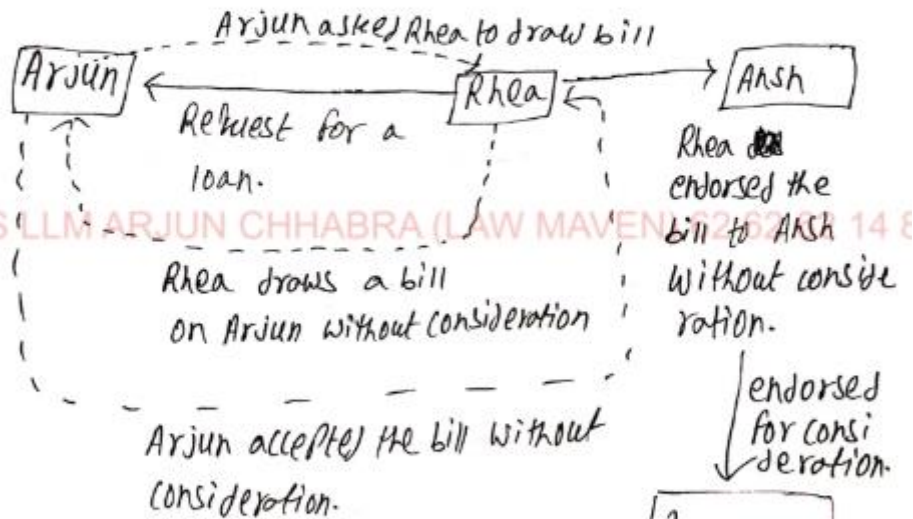 Arjun asked Rhea to draw bill
Arjun
Rhea
Ansh
Request for a
loan.
Rhea
endorsed the
bill to Ansh
without conside
ration.
S LLM ARJUN CHHABRA (LAW MAVEN) 62 62 62 14 8
Rhea draws a bill
on Arjun without consideration
endorsed
for consi
deration.
Arjun accepted the bill without
consideration.